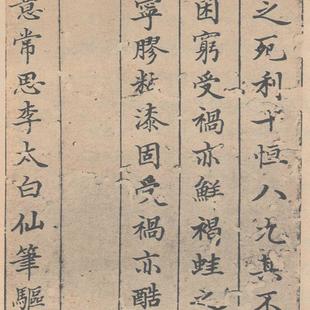 之死利十恒八九真不
困窮受禍亦鮮褐蛙之
寧膠黏漆固受禍亦酷
意常思李太白仙筆驅